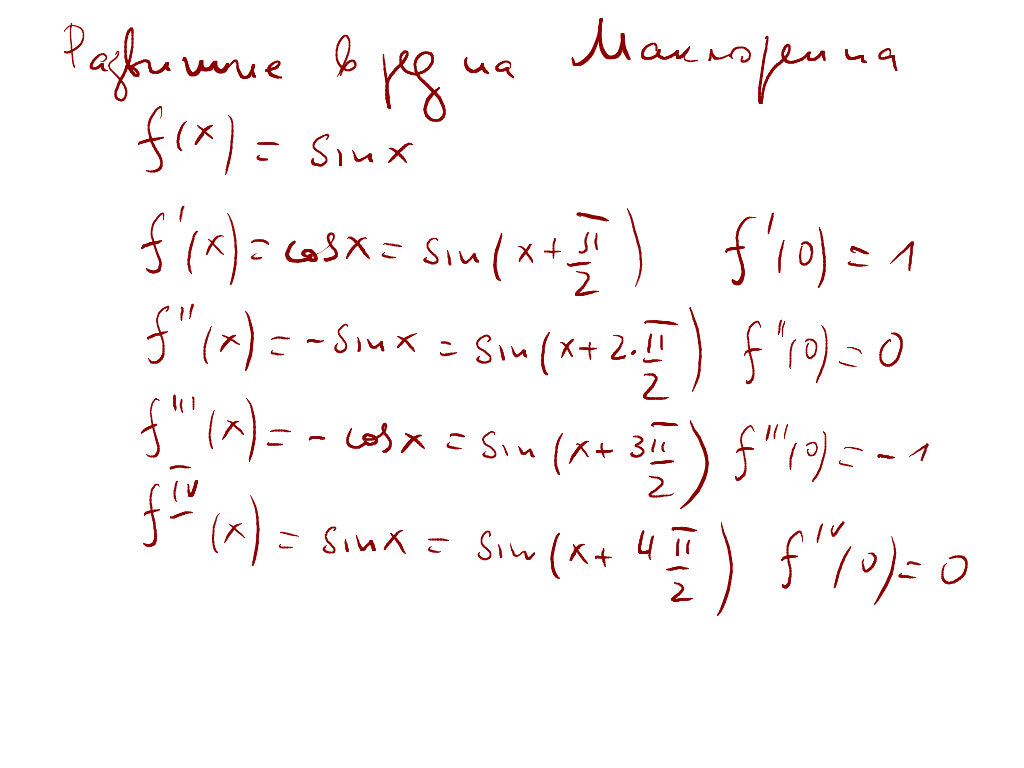 Развитие в ред на Маклорена
f(x) = sin x
f'(x) = cos x = sin(x + π/2) f'(0) = 1
f''(x) = - sin x = sin(x + 2·π/2) f''(0) = 0
f'''(x) = - cos x = sin(x + 3π/2) f'''(0) = -1
f^IV(x) = sin x = sin(x + 4π/2) f^IV(0) = 0